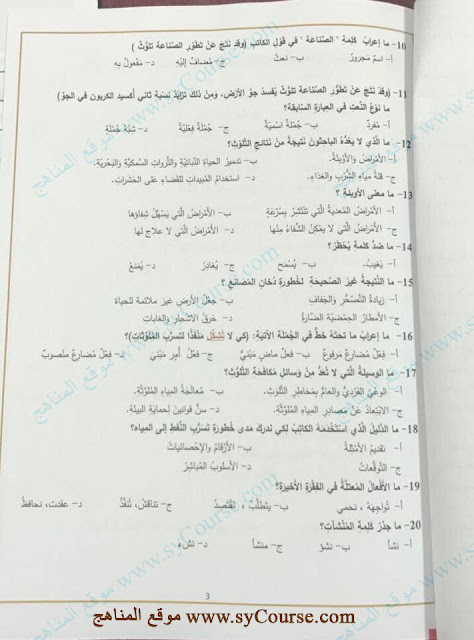 10- ما إعراب كلمة "الصناعة" في قول الكاتب (وقد نتج عن تطور الصناعة تلوث)
أ- اسم مجرور ب- نعت ج- مضاف إليه د- مفعول به
11- (وقد نتج عن تطور الصناعة تلوث يفسد جو الأرض، ومن ذلك تزايد نسبة ثاني أكسيد الكربون في الجو)
ما نوع النعت في العبارة السابقة؟
أ- مفرد ب- جملة اسمية ج- جملة فعلية د- شبه جملة
12- ما الذي لا يعده الباحثون نتيجة من نتائج التلوث؟
أ- الأمراض والأوبئة. ب- تدمير الحياة النباتية والثروات السمكية والبحرية.
ج- قلة مياه الشرب والغذاء. د- استخدام المبيدات للقضاء على الحشرات.
13- ما معنى الأوبئة؟
أ- الأمراض المعدية التي تنتشر بسرعة ب- الأمراض التي يسهل شفاؤها
ج- الأمراض التي لا يمكن الشفاء منها د- الأمراض التي لا علاج لها
14- ما ضد كلمة يحظر؟
أ- يغيب. ب- يسمح ج- يغادر د- يمنع
15- ما النتيجة غير الصحيحة لخطورة دخان المصانع؟
أ- زيادة التصحر والجفاف ب- جعل الأرض غير ملائمة للحياة
ج- الأمطار الحمضية الضارة د- حرق الأشجار والغابات
16- ما إعراب ما تحته خط في الجملة الآتية: (كي لا تشكل منفذا لتسرب الملوثات)؟
أ- فعل مضارع مرفوع ب- فعل ماض مبني ج- فعل أمر مبني د- فعل مضارع منصوب
17- ما الوسيلة التي لا تعد من وسائل مكافحة التلوث؟
أ- الوعي الفردي والعام بمخاطر التلوث. ب- معالجة المياه الملوثة.
ج- الابتعاد عن مصادر المياه الملوثة. د- سن قوانين لحماية البيئة.
18- ما الدليل الذي استخدمه الكاتب لكي ندرك مدى خطورة تسرب النفط إلى المياه؟
أ- تقديم الأمثلة ب- الأرقام والإحصائيات
ج- التوقعات د- الأسلوب المباشر
19- ما الأفعال المعتلة في الفقرة الأخيرة؟
أ- نواجهه، نحمي ب- يتطلب، نقتصد ج- تناقش، تنفذ د- عقدت، نحافظ
20- ما جذر كلمة المنشآت؟
أ- نشأ ب- نشؤ ج- منشأ د- نشء
3
موقع المناهج www.syCourse.com